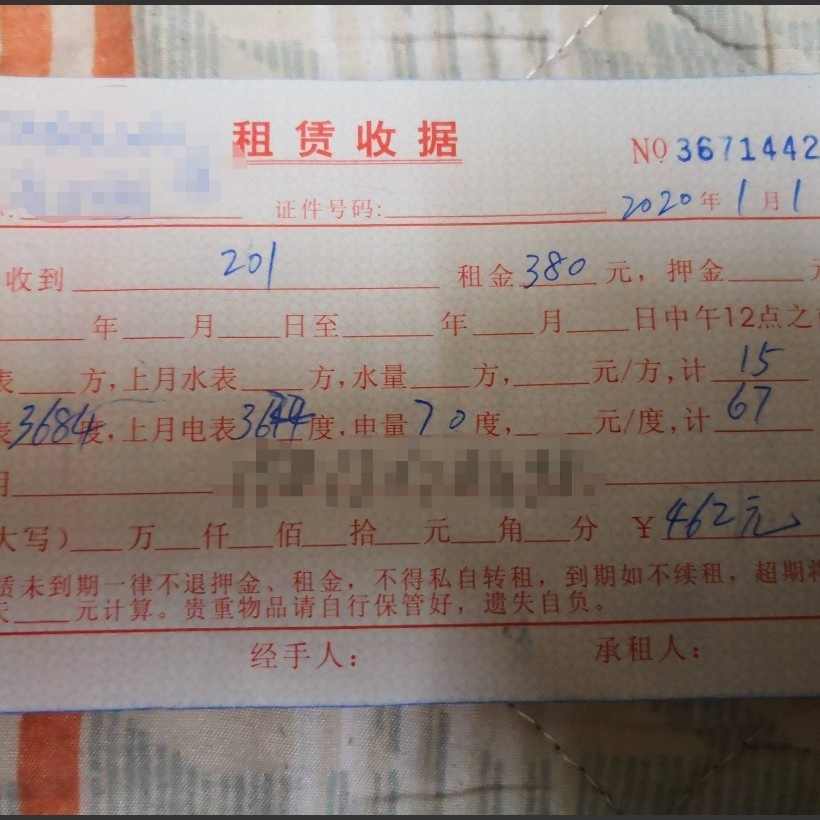 租赁收据
NO 3671442
证件号码: 2020年1月1
收到 201 租金380元,押金 元
年 月 日至 年 月 日中午12点之
表 方,上月水表 方,水量 方, 元/方,计15
表3684度,上月电表 度,电量70度, 元/度,计67
月
大写) 万 仟 佰 拾 元 角 分 ¥462元
赁未到期一律不退押金、租金,不得私自转租,到期如不续租,超期将
天 元计算。贵重物品请自行保管好,遗失自负。
经手人: 承租人: